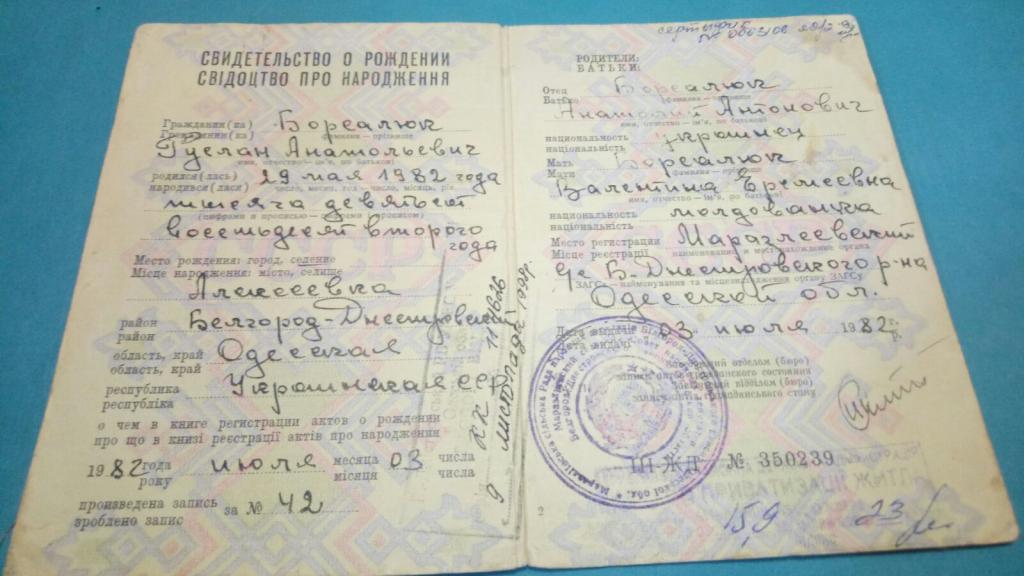 СВИДЕТЕЛЬСТВО О РОЖДЕНИИ
СВІДОЦТВО ПРО НАРОДЖЕННЯ
Гражданин(ка) Бореалюк
Громадянин(ка) фамилия — прізвище
Руслан Анатольевич
имя, отчество — ім'я, по батькові
родился(лась) 29 мая 1982 года
народився(лася) число, месяц, год — число, місяць, рік
тысяча девятьсот
(цифрами и прописью — цифрами і прописом)
восемьдесят второго
года
Место рождения: город, селение
Місце народження: місто, селище
Алексеевка
район Белгород-Днестровский
район
область, край Одесская
область, край
республика Украинская ССР
республіка
о чем в книге регистрации актов о рождении
про що в книзі реєстрації актів про народження
1982 года июля месяца 03 числа
року місяця числа
произведена запись за № 42
зроблено запис
9 листопада 1998р.
сертификат
РОДИТЕЛИ:
БАТЬКИ:
Отец Бореалюк
Батько фамилия — прізвище
Анатолий Антонович
имя, отчество — ім'я, по батькові
национальность украинец
національність
Мать Бореалюк
Мати фамилия — прізвище
Валентина Еремеевна
имя, отчество — ім'я, по батькові
национальность молдаванка
національність
Место регистрации Маразлеевский
Місце реєстрації наименование и местонахождение органа
с/с Б-Днестровского р-на
ЗАГСа — найменування та місцезнаходження органу ЗАГСу
Одесской обл.
Дата выдачи 03 июля 1982 г.
Дата видачі р.
отделом (бюро)
записи актов гражданского состояния
відділом (бюро)
запису актів громадянського стану
III-ЖД № 350239
2
15,9
23